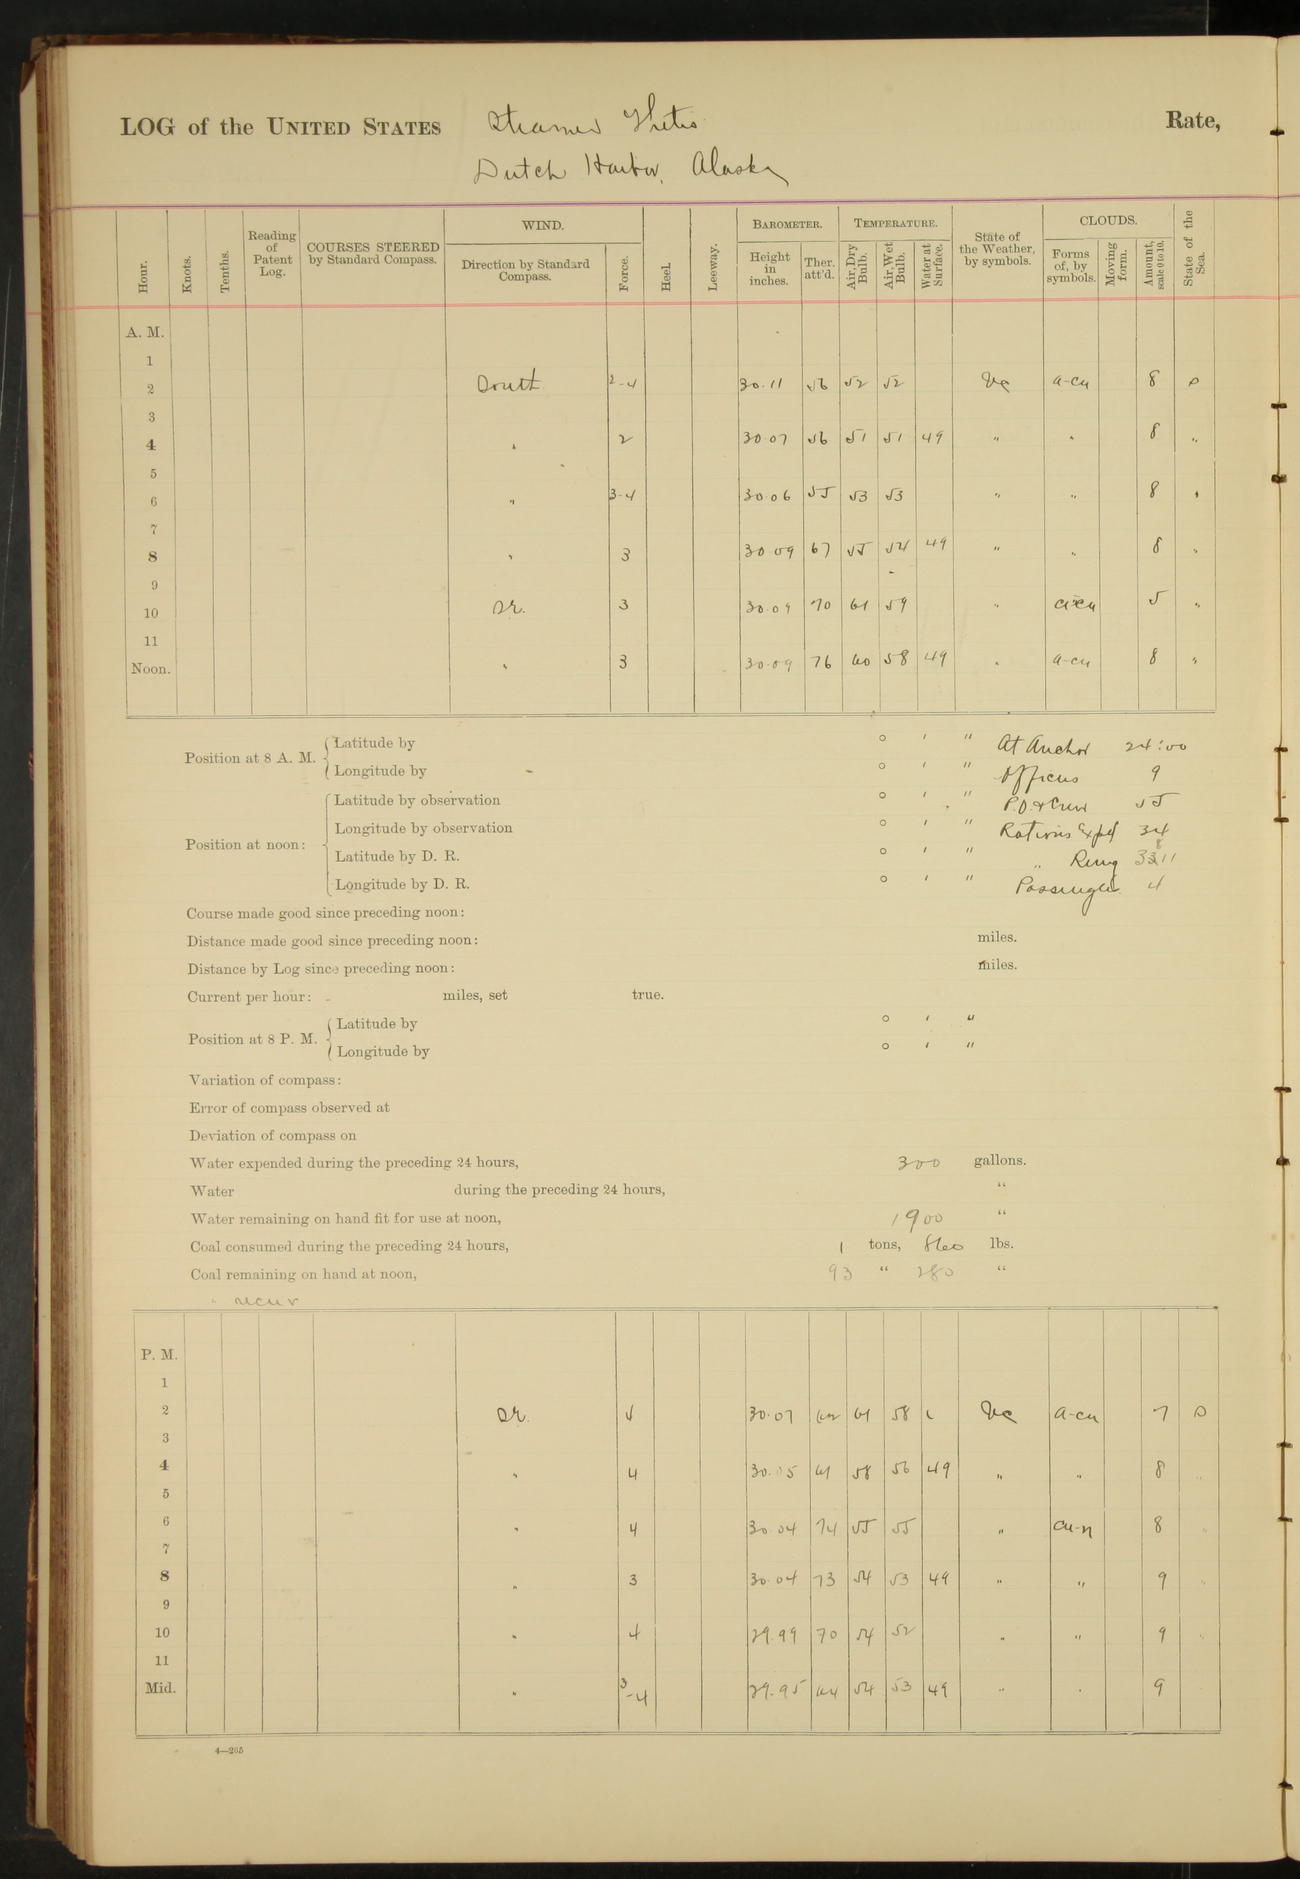 LOG of the UNITED STATES Steamer Thetis Rate,
Dutch Harbor, Alaska
Hour. Knots. Tenths. Reading of Patent Log. COURSES STEERED by Standard Compass. WIND. Direction by Standard Compass. Force. Heel. Leeway. BAROMETER. Height in inches. Ther. att'd. TEMPERATURE. Air, Dry Bulb. Air, Wet Bulb. Water at Surface. State of the Weather, by symbols. CLOUDS. Forms of, by symbols. Moving form. Amount, scale 0 to 10. State of the Sea.
A. M.
1
2 South 2-4 30.11 56 52 52 a-cu 8
3
4 " 2 30.07 56 51 51 49 " " 8 "
5
6 " 3-4 30.06 55 53 53 " " 8 "
7
8 " 3 30.09 67 55 54 49 " " 8 "
9
10 3 30.09 70 61 59 " 5 "
11
Noon. " 3 30.09 76 60 58 49 " a-cu 8 "
Position at 8 A. M. Latitude by ° ' " At Anchor 24:00
Longitude by ° ' " Officers 9
Position at noon: Latitude by observation ° ' " P.O. & Crew 55
Longitude by observation ° ' " Rations Expd 34
Latitude by D. R. ° ' " "
Longitude by D. R. ° ' " Passengers 4
Course made good since preceding noon:
Distance made good since preceding noon: miles.
Distance by Log since preceding noon: miles.
Current per hour: miles, set true.
Position at 8 P. M. Latitude by ° ' "
Longitude by ° ' "
Variation of compass:
Error of compass observed at
Deviation of compass on
Water expended during the preceding 24 hours, 300 gallons.
Water during the preceding 24 hours, "
Water remaining on hand fit for use at noon, 1900 "
Coal consumed during the preceding 24 hours, 1 tons, lbs.
Coal remaining on hand at noon, 93 " 280 "
P. M.
1
2 4 30.07 62 61 58 a-cu 7
3
4 " 4 30.05 61 58 56 49 " " 8 "
5
6 " 4 30.04 74 55 55 " cu-n 8 "
7
8 " 3 30.04 73 54 53 49 " " 9 "
9
10 " 4 29.99 70 54 52 " " 9 "
11
Mid. " 3-4 29.95 64 54 53 49 " " 9
4—265